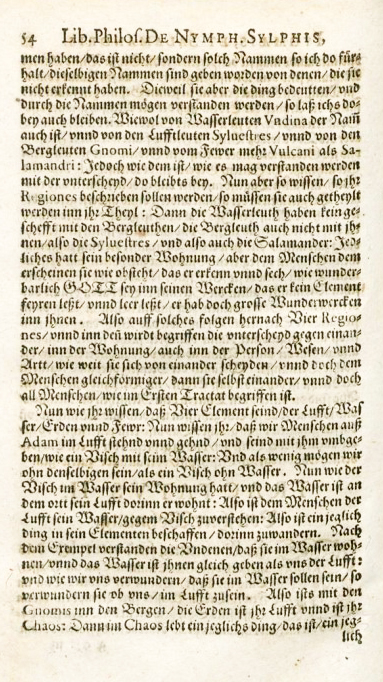 54 Lib. Philos. DE NYMPH. SYLPHIS,
men haben/das ist nicht/sondern solch Nammen so ich do für⸗
halt/dieselbigen Nammen sind geben worden von denen/die sie
nicht erkennt haben. Dieweil sie aber die ding bedeutten/vnd
durch die Nammen mögen verstanden werden/so laß ichs do⸗
bey auch bleiben. Wiewol von Wasserleuten Vndina der Nam̃
auch ist/vnnd von den Lufftleuten Syluestres/vnnd von den
Bergleuten Gnomi/vnnd vom Fewer mehr Vulcani als Sa-
lamandri: Jedoch wie dem ist/wie es mag verstanden werden
mit der vnterscheyd/do bleibts bey. Nun aber so wissen/so jhr
Regiones beschrieben sollen werden/so müssen sie auch getheylt
werden inn jhr Theyl: Dann die Wasserleuth haben kein ge⸗
schefft mit den Bergleuthen/die Bergleuth auch nicht mit jh⸗
nen/also die Syluestres/vnd also auch die Salamander: Jed⸗
liches hatt sein besonder Wohnung/aber dem Menschen dem
erscheinen sie wie obsteht/das er erkenn vnnd sech/wie wunder⸗
barlich GOTT sey inn seinen Wercken/das er kein Element
feyren leßt/vnnd leer leßt/er hab doch grosse Wunderwercken
inn jhnen. Also auff solches folgen hernach Vier Regio-
nes/vnnd inn den wirdt begriffen die vnterscheyd gegen einan⸗
der/inn der Wohnung/auch inn der Person/Wesen/vnnd
Artt/wie weit sie sich von einander scheyden/vnnd doch dem
Menschen gleichförmiger/dann sie selbst einander/vnnd doch
all Menschen/wie im Ersten Tractat begriffen ist.
Nun wie jhr wissen/daß Vier Element seind/der Lufft/Was
ser/Erden vnnd Fewr: Nun wissen jhr/daß wir Menschen auß
Adam im Lufft stehnd vnnd gehnd/vnd seind mit jhm vmbge⸗
ben/wie ein Visch mit seim Wasser: Vnd als wenig mögen wir
ohn denselbigen sein/als ein Visch ohn Wasser. Nun wie der
Visch im Wasser sein Wohnung hatt/vnd das Wasser ist an
dem ortt sein Lufft dorinn er wohnt: Also ist dem Menschen der
Lufft sein Wasser/gegem Visch zuverstehen: Also ist ein jeglich
ding in sein Elementen beschaffen/dorinn zuwandern. Nach
dem Exempel verstanden die Vndenen/daß sie im Wasser woh⸗
nen/vnnd das Wasser ist jhnen gleich geben als vns der Lufft:
vnd wie wir vns verwundern/daß sie im Wasser sollen sein/so
verwundern sie ob vns/im Lufft zusein. Also ists mit den
Gnomis inn den Bergen/die Erden ist jhr Lufft vnnd ist jhr
Chaos: Dann im Chaos lebt ein jeglichs ding/das ist/ein jeg⸗
lich